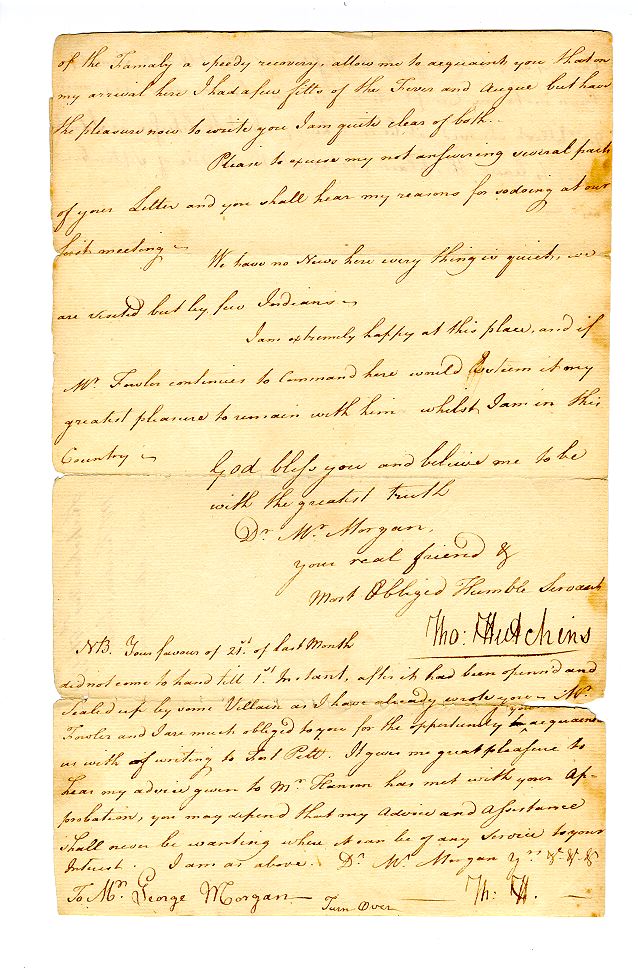 of the Famaly a speedy recovery, allow me to acquaint you that on
my arrival here I had a few fitts of the Fever and Augue but have
the pleasure now to write you I am quite clear of both.
Please to excuse my not answering several parts
of your Letter and you shall hear my reasons for so doing at our
first meeting
We have no News here every thing is quiet, we
are visited but by few Indians
I am extremely happy at this place, and if
Mr. Fowler continues to Command here would Esteem it my
greatest pleasure to remain with him whilst I am in this
Country
God bless you and believe me to be
with the greatest truth
Dr. Mr. Morgan,
your real friend &
Most Obliged Humble Servant
Tho: Hutchins
NB. Your favour of 21st. of last Month
did not come to hand till 1st. Instant, after it had been open'd and
Sealed up by some Villain as I have already wrote you - Mr.
Fowler and I are much obliged to you for the opportunity you acquaint
us with of writing to Fort Pitt. It gives me great pleasure to
hear my advice given to Mr. Hanson has met with your Ap-
probation, you may depend that my Advice and Assistance
shall never be wanting where it can be of any Service to your
Interest. I am as above. Dr. Mr. Morgan Yrs. &c. &c. &c
To Mr. George Morgan Th: H.
Turn Over